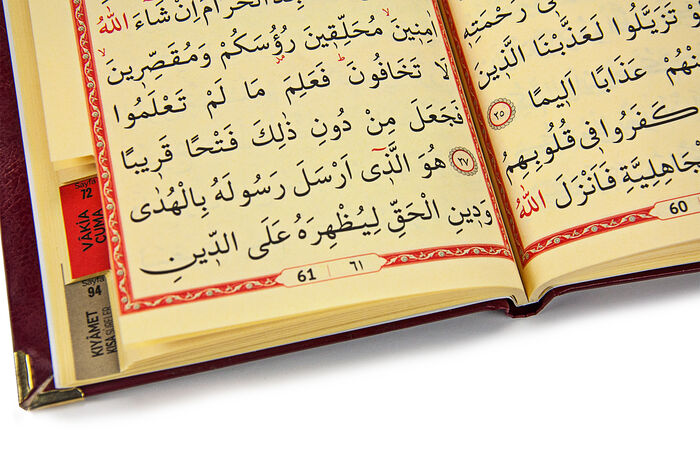 رَحْمَتِهٖ
تَزَيَّلُوا لَعَذَّبْنَا الَّذٖينَ
مِنْهُمْ عَذَابًا اَلٖيمًا ٢٥
كَفَرُوا فٖى قُلُوبِهِمُ
الْجَاهِلِيَّةِ فَاَنْزَلَ اللّٰهُ
60
الْحَرَامَ اِنْ شَاءَ اللّٰهُ
اٰمِنٖينَ مُحَلِّقٖينَ رُؤُسَكُمْ وَمُقَصِّرٖينَ
لَا تَخَافُونَ فَعَلِمَ مَا لَمْ تَعْلَمُوا
فَجَعَلَ مِنْ دُونِ ذٰلِكَ فَتْحًا قَرٖيبًا
٢٧ هُوَ الَّذٖى اَرْسَلَ رَسُولَهُ بِالْهُدٰى
وَدٖينِ الْحَقِّ لِيُظْهِرَهُ عَلَى الدّٖينِ
61 ٦١
Sayfa
72
VÂKIA
CUMA
Sayfa
94
KIYÂMET
KISA SÛRELER